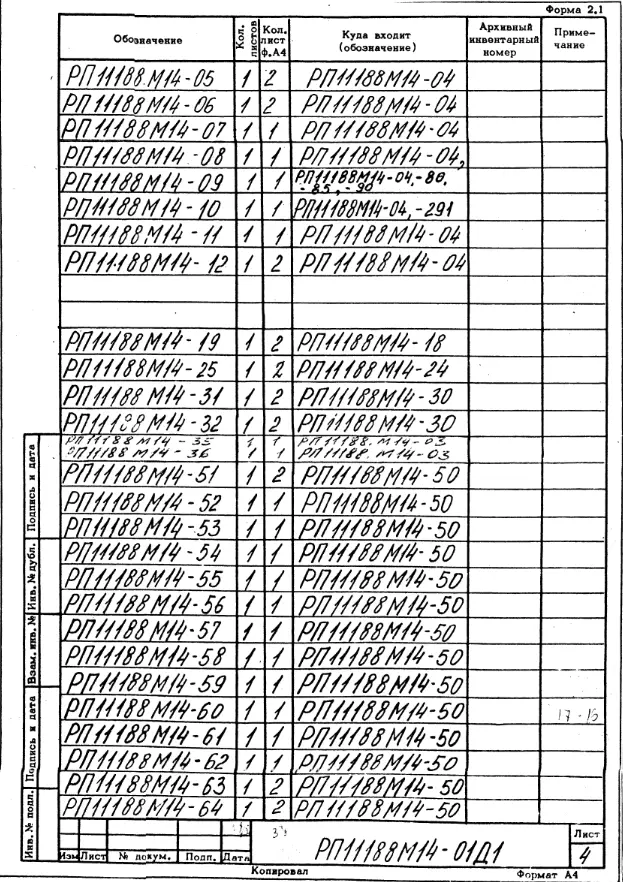 Форма 2.1
Обозначение Кол. листов Кол. лист ф.А4 Куда входит (обозначение) Архивный инвентарный номер Примечание
РП11188М14-05 1 2 РП11188М14-04
РП11188М14-06 1 2 РП11188М14-04
РП11188М14-07 1 1 РП11188М14-04
РП11188М14-08 1 1 РП11188М14-04,
РП11188М14-09 1 1 РП11188М14-04,-80,
-85,-90
РП11188М14-10 1 1 РП11188М14-04,-291
РП11188М14-11 1 1 РП11188М14-04
РП11188М14-12 1 2 РП11188М14-04
РП11188М14-19 1 2 РП11188М14-18
РП11188М14-25 1 2 РП11188М14-24
РП11188М14-31 1 2 РП11188М14-30
РП11188М14-32 1 2 РП11188М14-30
РП11188М14-35 1 1 РП11188.М14-03
РП11188М14-36 1 1 РП11188.М14-03
РП11188М14-51 1 2 РП11188М14-50
РП11188М14-52 1 1 РП11188М14-50
РП11188М14-53 1 1 РП11188М14-50
РП11188М14-54 1 1 РП11188М14-50
РП11188М14-55 1 1 РП11188М14-50
РП11188М14-56 1 1 РП11188М14-50
РП11188М14-57 1 1 РП11188М14-50
РП11188М14-58 1 1 РП11188М14-50
РП11188М14-59 1 1 РП11188М14-50
РП11188М14-60 1 1 РП11188М14-50
РП11188М14-61 1 1 РП11188М14-50
РП11188М14-62 1 1 РП11188М14-50
РП11188М14-63 1 2 РП11188М14-50
РП11188М14-64 1 2 РП11188М14-50
Подпись и дата
Инв. № дубл.
Взам. инв. №
Подпись и дата
Инв. № подл.
Изм Лист № докум. Подп. Дата
РП11188М14-01Д1
Лист
4
Копировал Формат А4